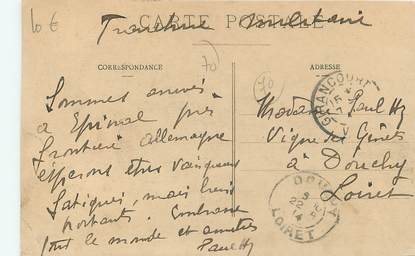 10 €
CARTE POSTALE
Franchise Militaire
70
70
CORRESPONDANCE
ADRESSE
Sommes arrivés
à Epinal près
frontière allemagne
espérons être vainqueurs
fatigués, mais bien
portants. Embrasse
tout le monde et amitiés
Paul H
GIRANCOURT
Madame Paul H
Vigne des Génêts
à Douchy
Loiret
DOUCHY
22
14
LOIRET